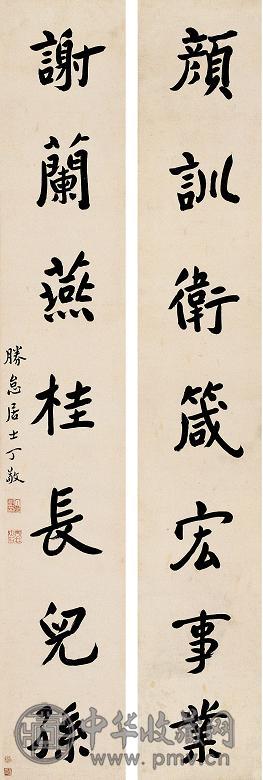 顔訓衛箴宏事業
謝蘭燕桂長兒孫
勝怠居士丁敬
中华收藏网
www.pmv.cn